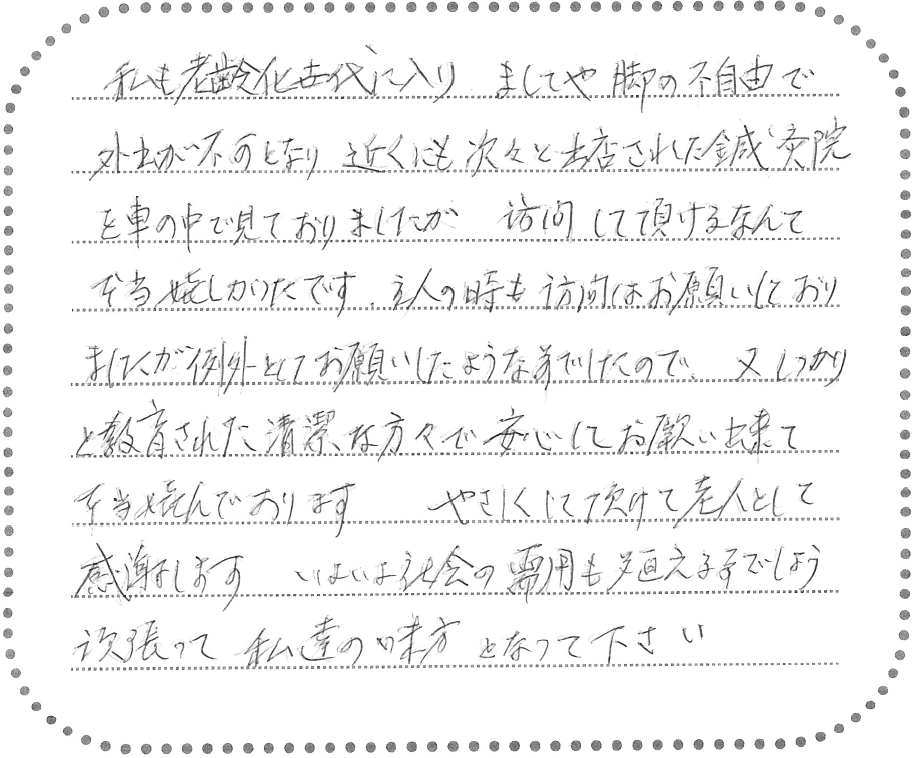 私も老齢化世代に入り ましてや脚の不自由で
外出が不可となり 近くにも次々と出店された鍼灸院
を車の中で見ておりましたが 訪問して頂けるなんて
本当嬉しかったです。主人の時も訪問はお願いしており
ましたが例外としてお願いしたような事でしたので、又しっかり
と教育された清潔な方々で安心してお願い出来て
本当嬉んでおります やさしくして頂けて老人として
感謝します いよいよ社会の需用も増える事でしょう
頑張って 私達の味方となって下さい